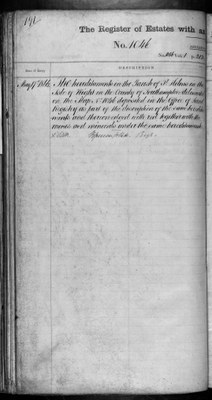 191
The Register of Estates with an
No. 1046
DESCRIPTION
Date of Entry
The hereditaments in the Parish of St Helens in the
Isle of Wight in the County of Southampton
on the Map No 1046 deposited in the Office of Land
Registry as part of the description of the same heredita-
ments and thereon edged with red together with the
mines and minerals under the same hereditaments